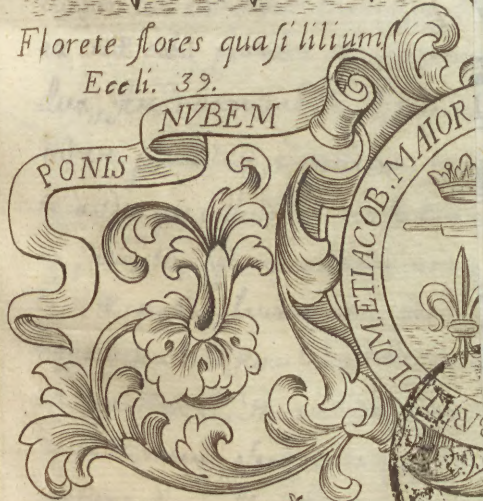 Florete flores quaſi lilium
Eccli. 39.
PONIS NVBEM
BARTHOLOM. ET IACOB. MAIOR